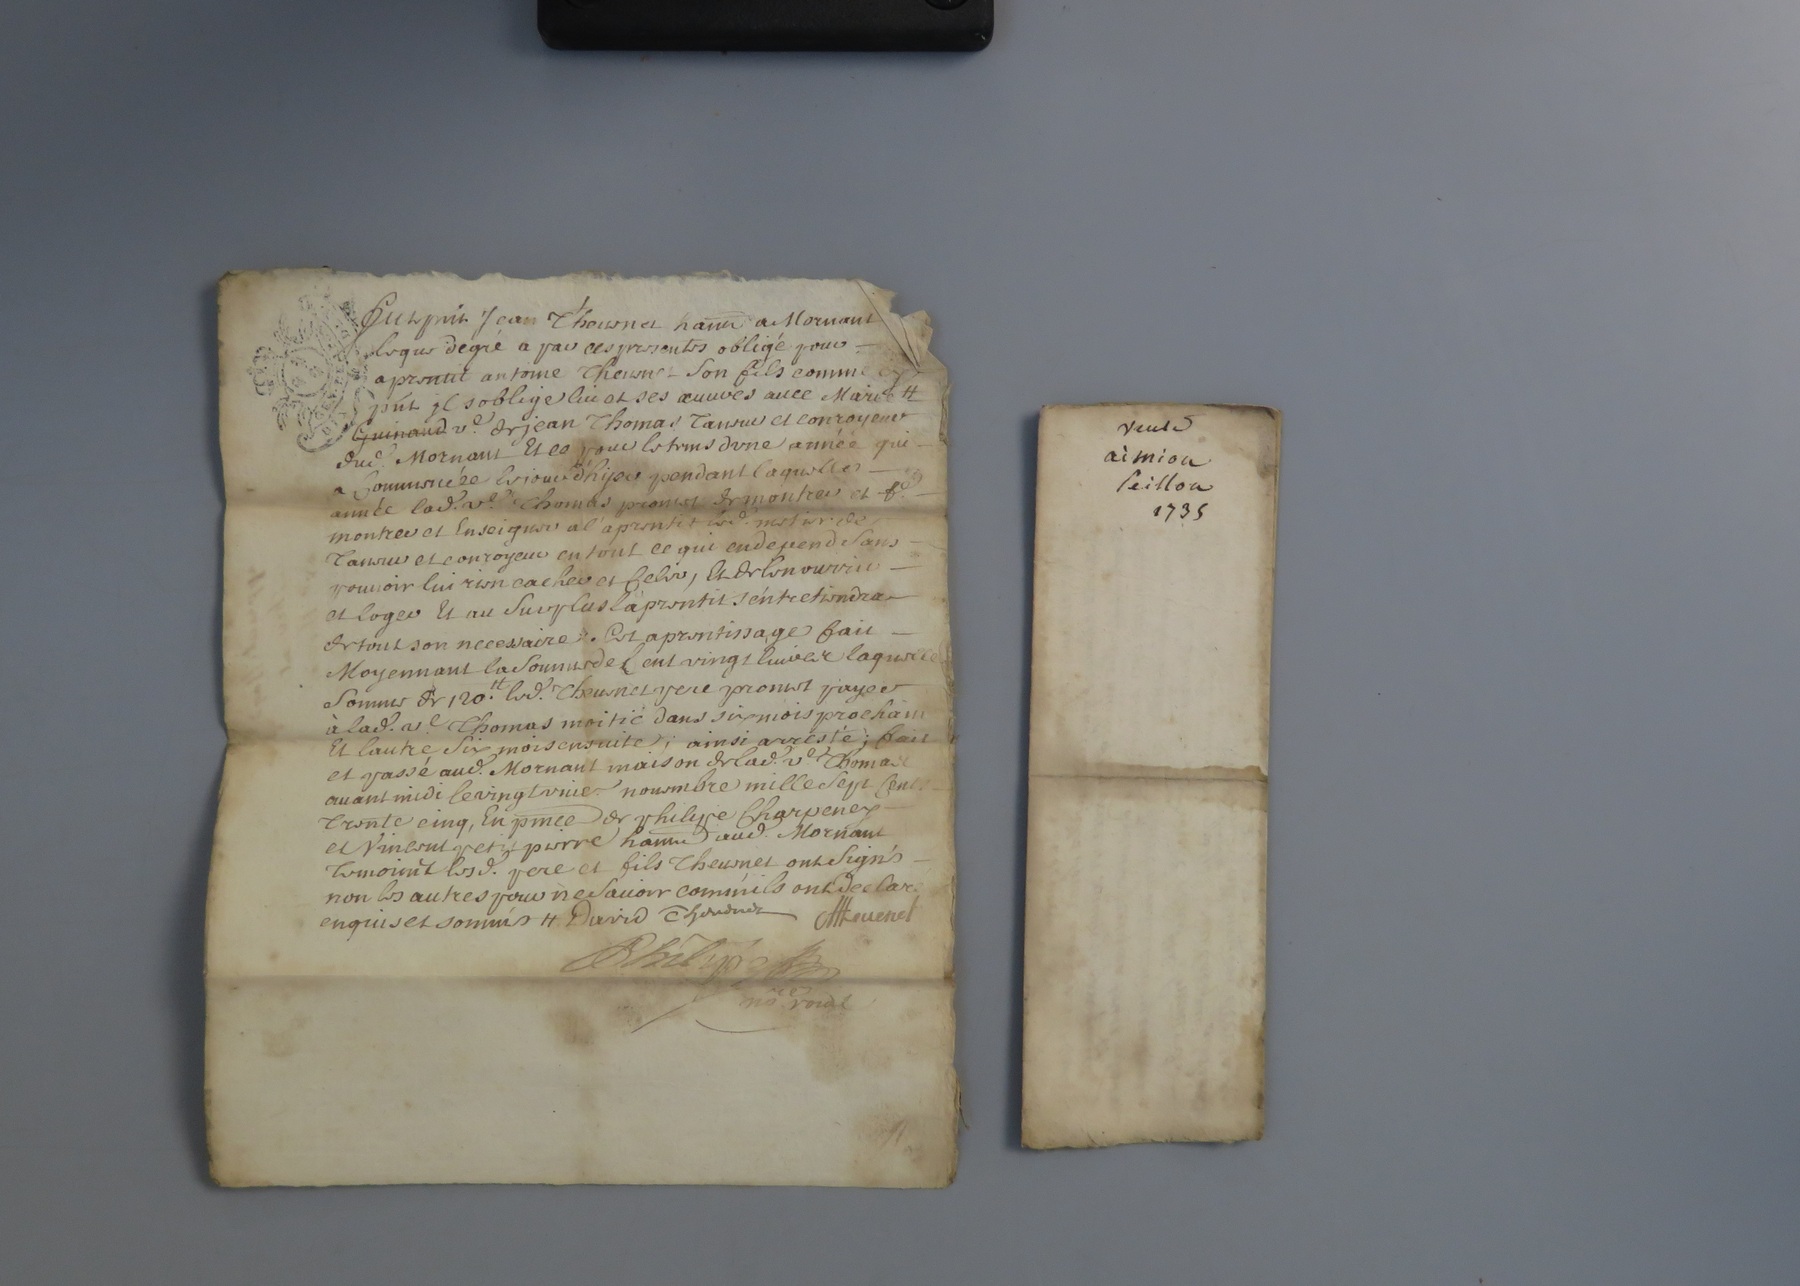 Fut pnt Jean Thevenet hant a Mornant
lequel degré a par ces presentes obligé pour
aprentit antoine Thevenet Son fils comme cy
pnt il s'oblige lui et ses œuvres avec Marie #
Guinand ve. de jean Thomas Taneur et conroyeur
dud. Mornant Et ce pour le tems dune année qui
a Commencée le jour d'hyer pendant laquelle
année lad. ve. Thomas promet de montrer et
montrer et Enseigner a l'aprentit led. metier de
Taneur et conroyeur en tout ce qui en depend Sans
pouvoir lui rien cacher et Celer, Et de le nourrir
et loger Et au Surplus l'aprentit s'entretiendra
de tout son necessaire. Cet aprentissage fait
Moyennant la Somme de Cent vingt livres laquelle
Somme de 120.# led. Thevenet pere promet payer
à lad. ve. Thomas moitié dans six mois prochain
Et lautre Six mois ensuite; ainsi arresté; fait
et passé aud. Mornant maison de lad. ve. Thomas
avant midi le vingt novembre mille Sept Cent
Trente cinq, En pnce de philipe Charpeney
et Vincent petit pierre hant aud. Mornant
Temoins lesd. pere et fils Thevenet ont Signés
non les autres pour ne Savoir comm'ils ont declaré
enquis et sommés # David Thevenet Thevenet
Philipe
nore. royal
vente
à imion
seillon
1735